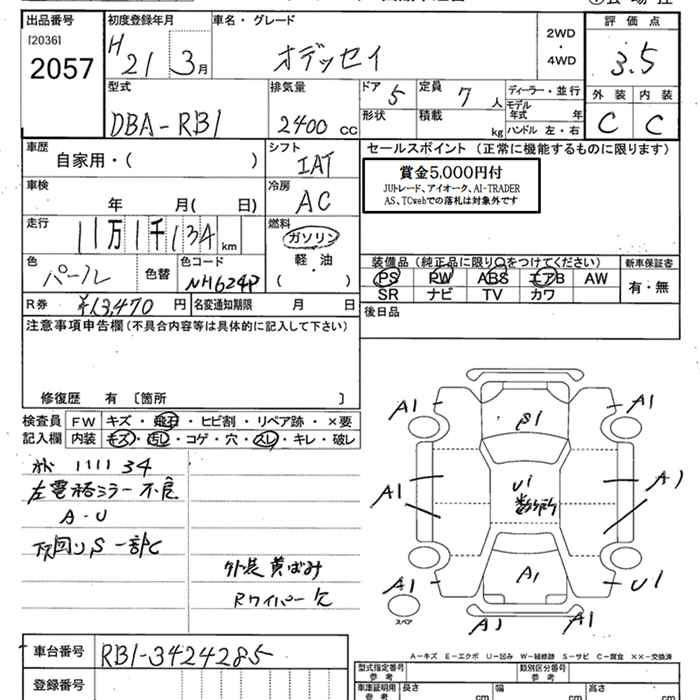 出品番号 初度登録年月 車名・グレード 評価点
[2036]
2057
H 21 3月
オデッセイ
2WD
・
4WD
3.5
型式 排気量 ドア 5 定員 7 人 ディーラー・並行 外装 内装
DBA-RB1 2400 cc
形状 積載 kg
モデル年式 年
ハンドル 左・右
C C
車歴 シフト セールスポイント (正常に機能するものに限ります)
自家用・( )
IAT
賞金5,000円付
JUトレード、アイオーク、AI-TRADER
AS、TCwebでの落札は対象外です
車検 冷房
年 月( 日)
AC
走行 燃料
11万1千134km
ガソリン
軽・油
( )
色 色コード
パール 色替 NH624P
装備品(純正品に限り○をつけてください) 新車保証書
PS PW ABS エアB AW
SR ナビ TV カワ
有・無
R券 ¥13,470円 名変通知期限 月 日
後日品
注意事項申告欄(不具合内容等は具体的に記入して下さい)
修復歴 有〔箇所 〕
検査員 FW キズ・飛石・ヒビ割・リペア跡・×要
記入欄 内装 キズ・汚し・コゲ・穴・スレ・キレ・破レ
1111 34
左電格ミラー不良
A-U
下回りS 一部C
外装黄ばみ
Rワイパー欠
A1 A1
S1
A1 U1 A1
数ヶ所
A1 A1 U1
スペア
A1 A1
A-キズ E-エクボ U-凹み W-補修跡 S-サビ C-腐食 ××-交換済
車台番号 RB1-3424285
型式指定番号 類別区分番号
参考 参考
登録番号
車庫証明用 参考 長さ cm 幅 cm 高さ cm